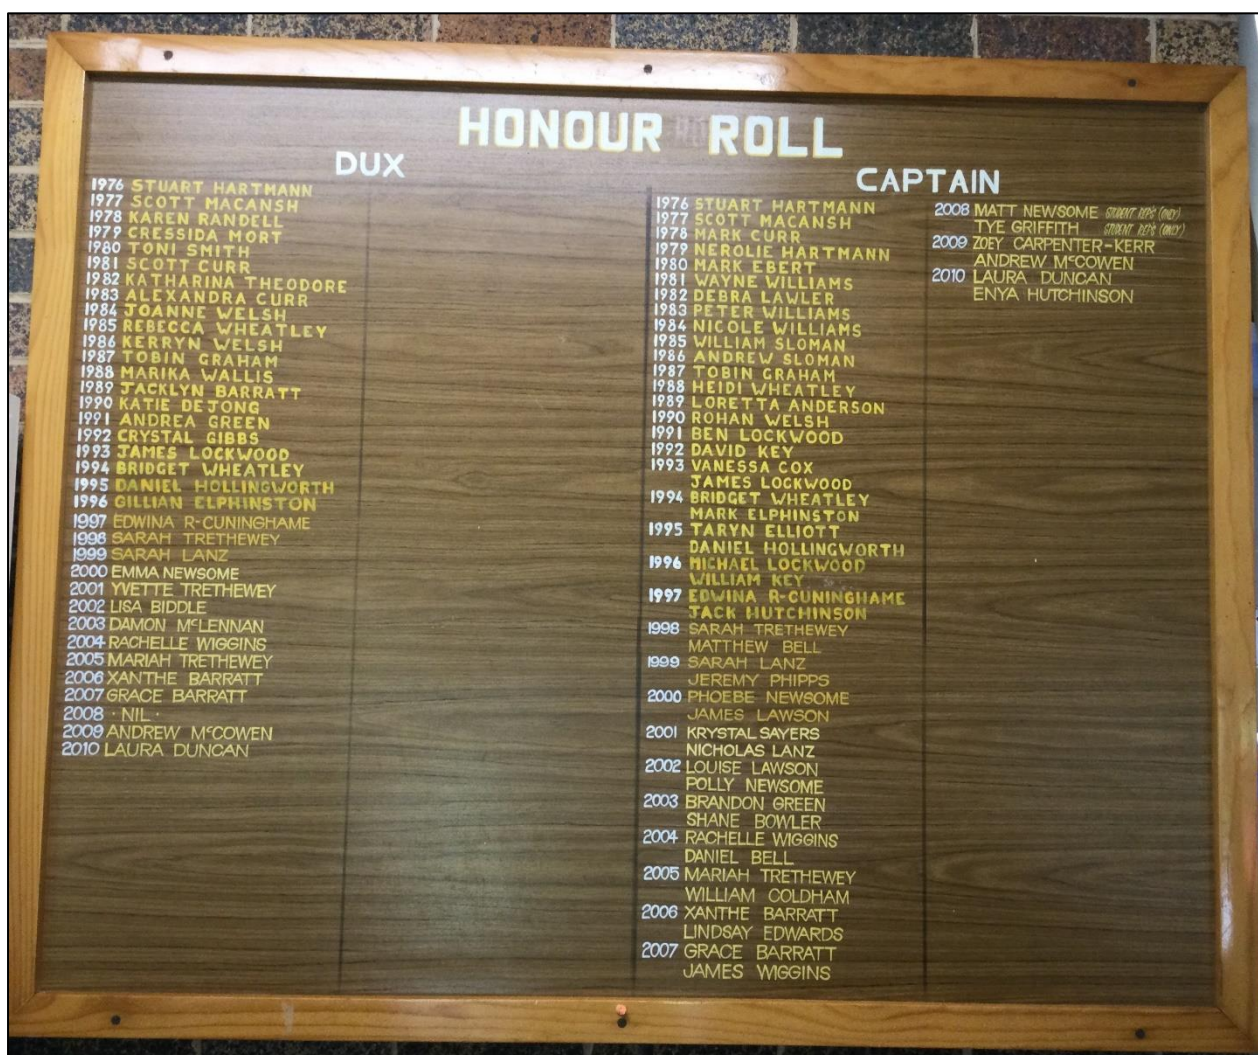 HONOUR ROLL
DUX
1976 STUART HARTMANN
1977 SCOTT MACANSH
1978 KAREN RANDELL
1979 CRESSIDA MORT
1980 TONI SMITH
1981 SCOTT CURR
1982 KATHARINA THEODORE
1983 ALEXANDRA CURR
1984 JOANNE WELSH
1985 REBECCA WHEATLEY
1986 KERRYN WELSH
1987 TOBIN GRAHAM
1988 MARIKA WALLIS
1989 JACKLYN BARRATT
1990 KATIE DE JONG
1991 ANDREA GREEN
1992 CRYSTAL GIBBS
1993 JAMES LOCKWOOD
1994 BRIDGET WHEATLEY
1995 DANIEL HOLLINGWORTH
1996 GILLIAN ELPHINSTON
1997 EDWINA R-CUNINGHAME
1998 SARAH TRETHEWEY
1999 SARAH LANZ
2000 EMMA NEWSOME
2001 YVETTE TRETHEWEY
2002 LISA BIDDLE
2003 DAMON McLENNAN
2004 RACHELLE WIGGINS
2005 MARIAH TRETHEWEY
2006 XANTHE BARRATT
2007 GRACE BARRATT
2008 · NIL ·
2009 ANDREW McCOWEN
2010 LAURA DUNCAN
CAPTAIN
1976 STUART HARTMANN
1977 SCOTT MACANSH
1978 MARK CURR
1979 NEROLIE HARTMANN
1980 MARK EBERT
1981 WAYNE WILLIAMS
1982 DEBRA LAWLER
1983 PETER WILLIAMS
1984 NICOLE WILLIAMS
1985 WILLIAM SLOMAN
1986 ANDREW SLOMAN
1987 TOBIN GRAHAM
1988 HEIDI WHEATLEY
1989 LORETTA ANDERSON
1990 ROHAN WELSH
1991 BEN LOCKWOOD
1992 DAVID KEY
1993 VANESSA COX
JAMES LOCKWOOD
1994 BRIDGET WHEATLEY
MARK ELPHINSTON
1995 TARYN ELLIOTT
DANIEL HOLLINGWORTH
1996 MICHAEL LOCKWOOD
WILLIAM KEY
1997 EDWINA R-CUNINGHAME
JACK HUTCHINSON
1998 SARAH TRETHEWEY
MATTHEW BELL
1999 SARAH LANZ
JEREMY PHIPPS
2000 PHOEBE NEWSOME
JAMES LAWSON
2001 KRYSTAL SAYERS
NICHOLAS LANZ
2002 LOUISE LAWSON
POLLY NEWSOME
2003 BRANDON GREEN
SHANE BOWLER
2004 RACHELLE WIGGINS
DANIEL BELL
2005 MARIAH TRETHEWEY
WILLIAM COLDHAM
2006 XANTHE BARRATT
LINDSAY EDWARDS
2007 GRACE BARRATT
JAMES WIGGINS
2008 MATT NEWSOME STUDENT REP'S (ONLY)
TYE GRIFFITH STUDENT REP'S (ONLY)
2009 ZOEY CARPENTER-KERR
ANDREW McCOWEN
2010 LAURA DUNCAN
ENYA HUTCHINSON